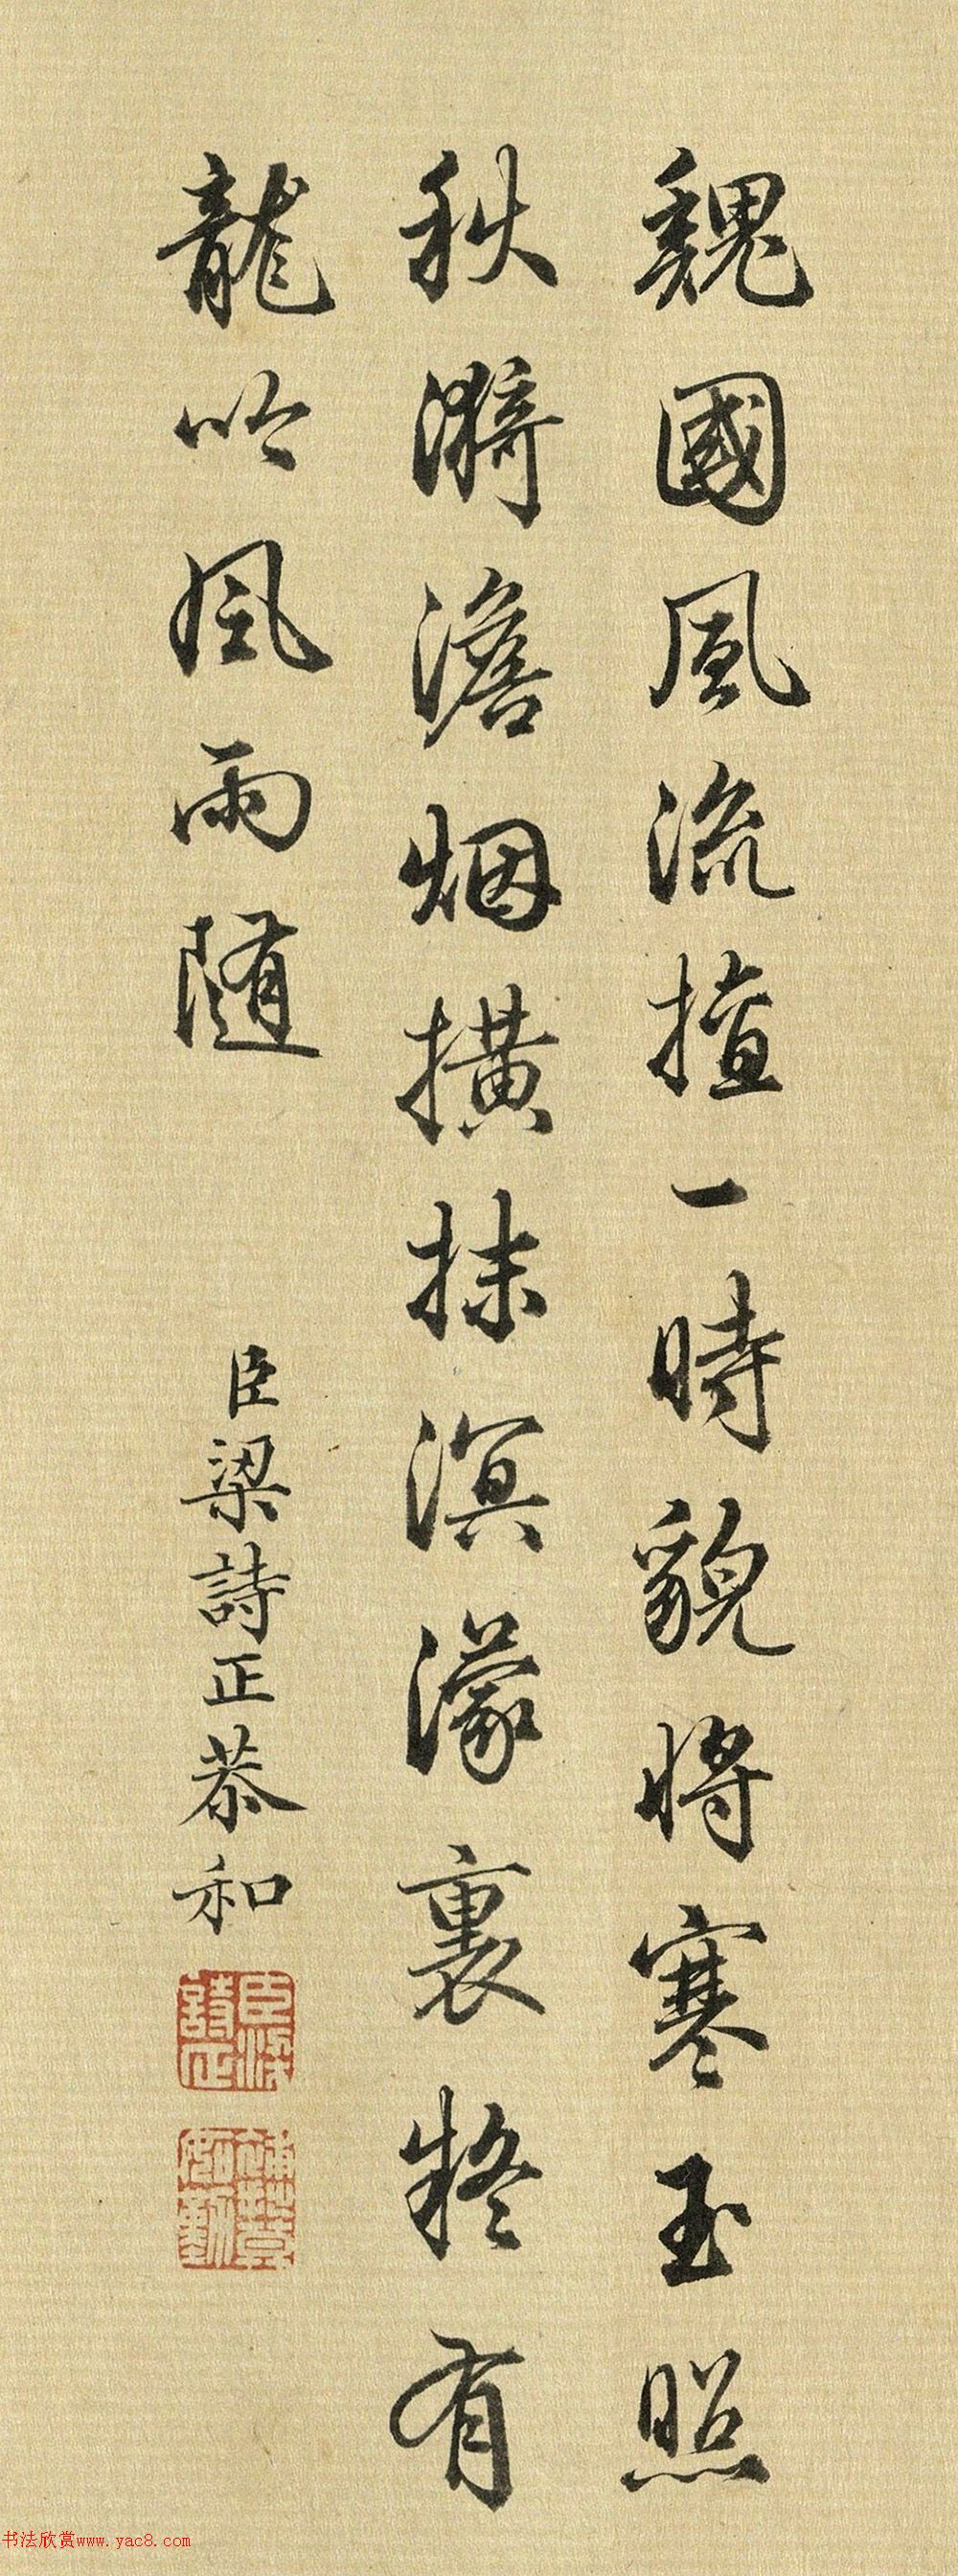 魏國風流擅一時貌將寒玉照
秋漪澹烟撗抹溟濛裏疑有
龍吟風雨隨
臣梁詩正恭和
臣梁詩正
书法欣赏www.yac8.com